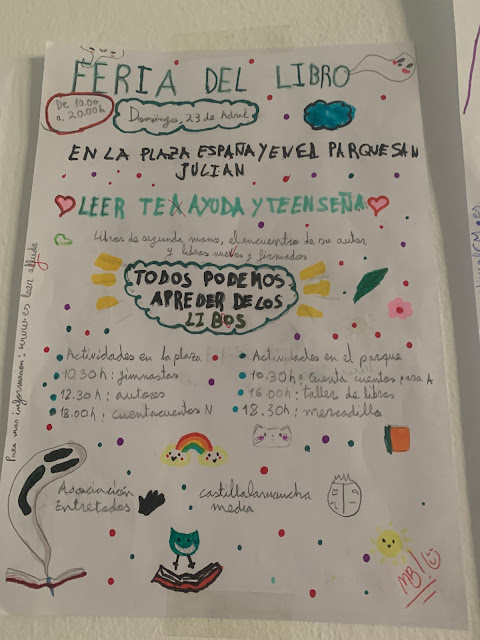 FERIA DEL LIBRO
De 10.00
a 20.00h
Domingo, 23 de Abril
EN LA PLAZA ESPAÑA Y EN EL PARQUE SAN
JULIAN
LEER TE AYUDA Y TE ENSEÑA
Libros de segunda mano, el encuentro de su autor
y libros nuevos y firmados
TODOS PODEMOS
APREDER DE LOS
LIBOS
Actividades en la plaza
10.30h: jimnastas
12.30h: autores
18.00h: cuentacuentos N
Actividades en el parque
10.30h: cuenta cuentos para A
16.00h: taller de libros
18.30h: mercadillo
Para mas informacion: www.es leer
Asociación
Entretodos
castillalamancha
media
MB!